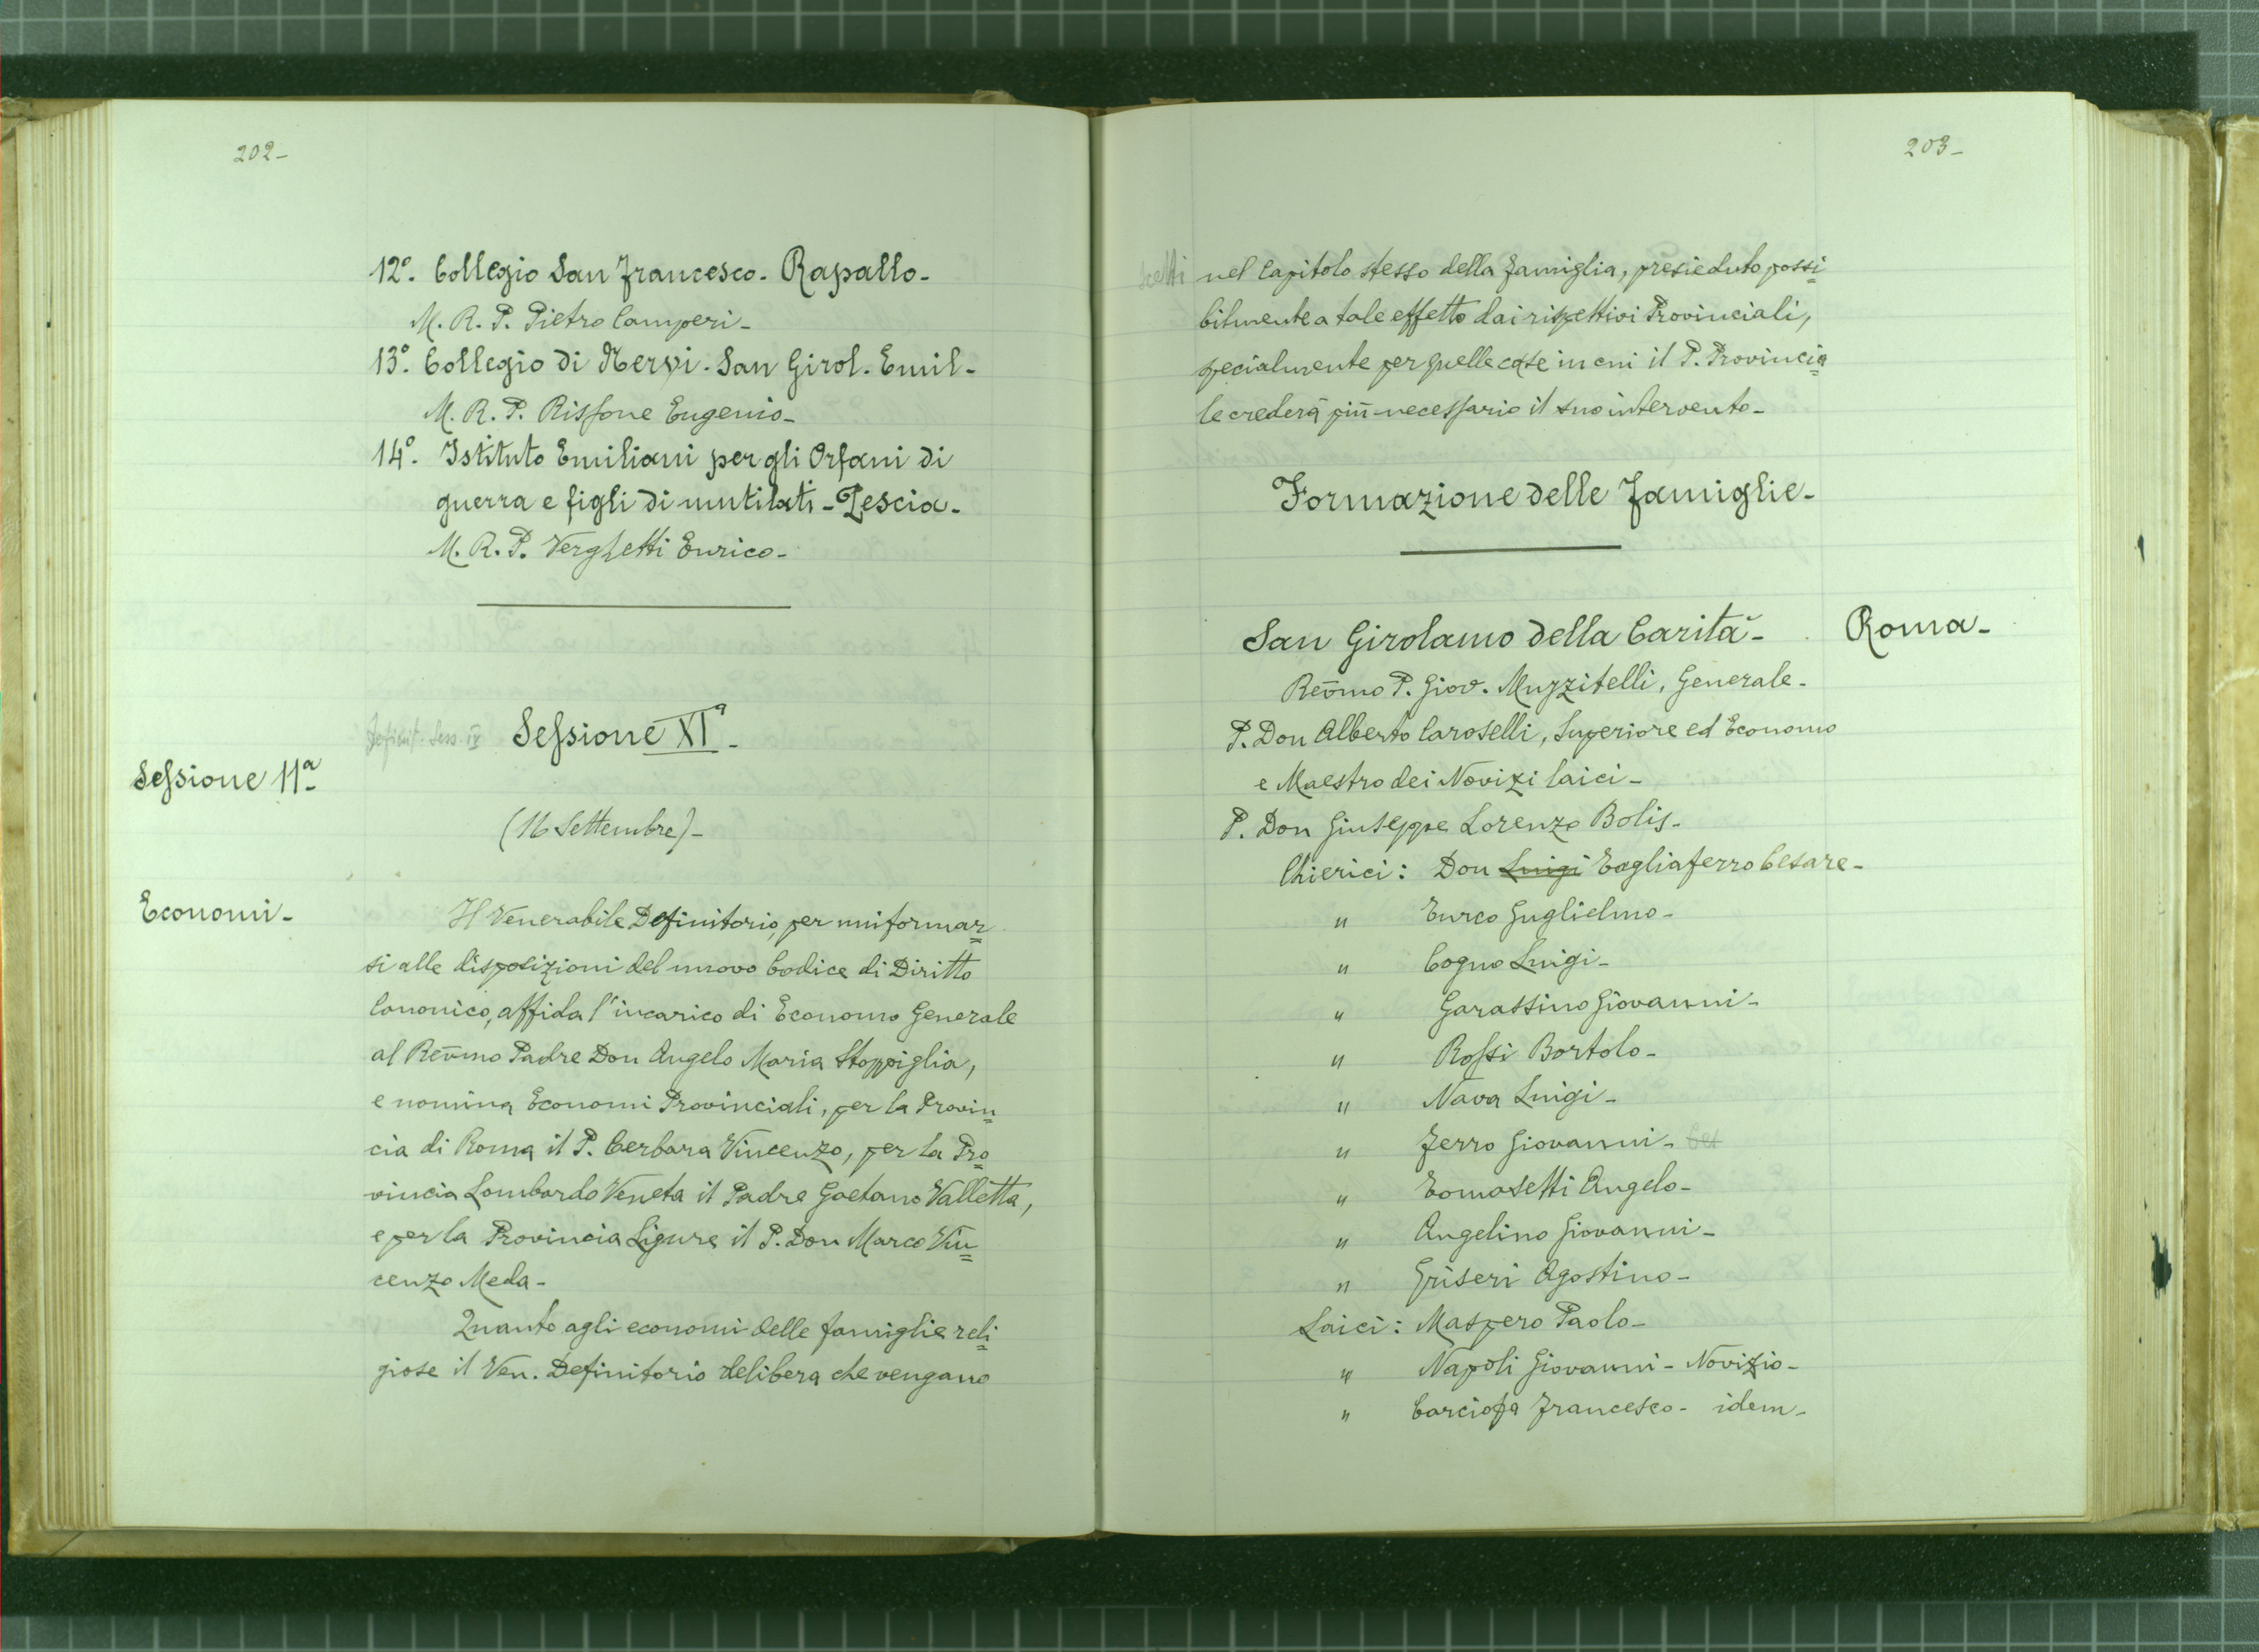 202-
12º. Collegio San Francesco. Rapallo-
M. R. P. Pietro Camperi-
13º. Collegio di Nervi. San Girol. Emil-
M. R. P. Rissone Eugenio-
14º. Istituto Emiliani per gli Orfani di
guerra e figli di mutilati - Pescia-
M. R. P. Verghetti Enrico-
Definit. Sess. IV Sessione XIª-
Sessione 11ª
(16 Settembre)-
Economi-
Il Venerabile Definitorio, per uniformar=
si alle disposizioni del nuovo Codice di Diritto
Canonico, affida l'incarico di Economo Generale
al Revmo Padre Don Angelo Maria Stoppiglia,
e nomina Economi Provinciali, per la Provin=
cia di Roma il P. Cerbara Vincenzo, per la Pro=
vincia Lombardo Veneta il Padre Gaetano Valletta,
e per la Provincia Ligure il P. Don Marco Vin=
cenzo Meda-
Quanto agli economi delle famiglie reli=
giose il Ven. Definitorio delibera che vengano
203-
scelti nel Capitolo stesso della famiglia, presieduto possi=
bilmente a tale effetto dai rispettivi Provinciali,
specialmente per quelle case in cui il P. Provincia=
le crederà più necessario il suo intervento-
Formazione delle Famiglie-
San Girolamo della Carità- Roma-
Revmo P. Giov. Muzzitelli, Generale-
P. Don Alberto Caroselli, Superiore ed Economo
e Maestro dei Novizi laici-
P. Don Giuseppe Lorenzo Bolis-
Chierici: Don Luigi Tagliaferro Cesare-
" Turco Guglielmo-
" Cogno Luigi-
" Garassino Giovanni-
" Rossi Bortolo-
" Nava Luigi-
" Ferro Giovanni-
" Tomasetti Angelo-
" Angelino Giovanni-
" Griseri Agostino-
Laici: Maspero Paolo-
" Napoli Giovanni - Novizio-
" Carciofa Francesco- idem-